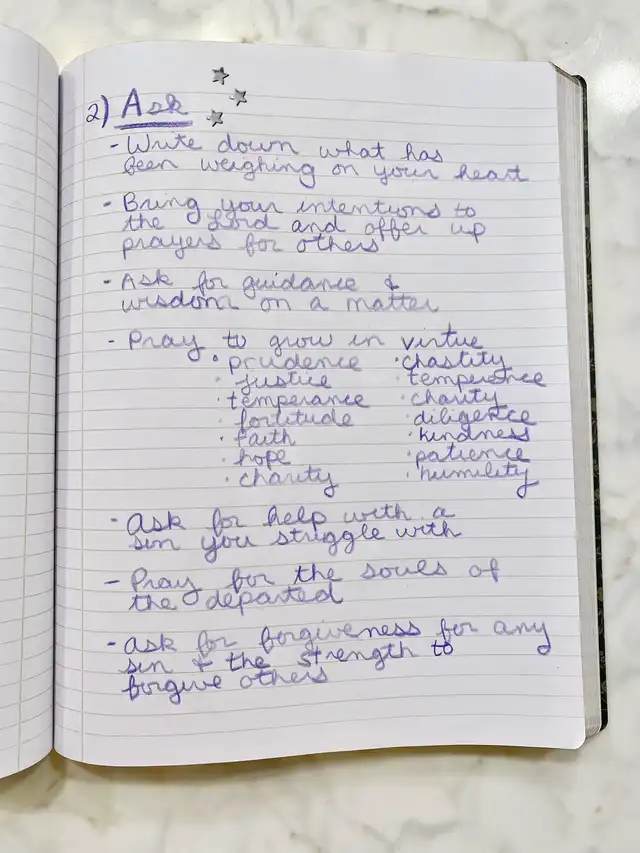 2) Ask
- Write down what has
been weighing on your heart
- Bring your intentions to
the Lord and offer up
prayers for others
- Ask for guidance &
wisdom on a matter
- Pray to grow in virtue
• prudence • chastity
• justice • temperence
• temperance • charity
• fortitude • diligence
• faith • kindness
• hope • patience
• charity • humility
- Ask for help with a
sin you struggle with
- Pray for the souls of
the departed
- Ask for forgiveness for any
sin & the strength to
forgive others